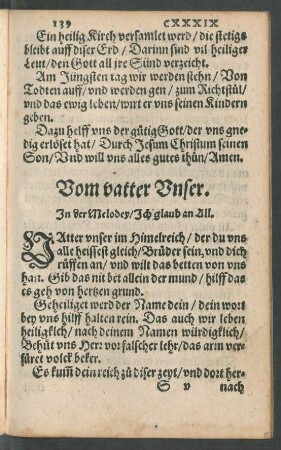 139 CXXXIX
Ein heilig Kirch versamlet werd / die stetigs
bleibt auff diser Erd / Darinn sind vil heiliger
Leut / den Gott all jre Sünd verzeicht.
Am Jüngsten tag wir werden stehn / Von
Todten auff / vnd werden gen / zum Richtstůl /
vnd das ewig leben / wirt er vns seinen Kindern
geben.
Dazu helff vns der gütig Gott / der vns gne-
dig erlöset hat / Durch Jesum Christum seinen
Son / Vnd will vns alles gutes thůn / Amen.
Vom vatter Vnser.
In der Melodey / Ich glaub an All.
VAtter vnser im Himelreich / der du vns
alle heissest gleich / Brüder sein / vnd dich
rüffen an / vnd wilt das betten von vns
han. Gib das nit bet allein der mund / hilff das
es geh von hertzen grund.
Geheiliget werd der Name dein / dein wort
bey vns hilff halten rein. Das auch wir leben
heiligklich / nach deinem Namen würdigklich /
Behüt vns Herr vor falscher lehr / das arm ver-
füret volck beker.
Es kum̃ dein reich zů diser zeyt / vnd dort her-
S v nach